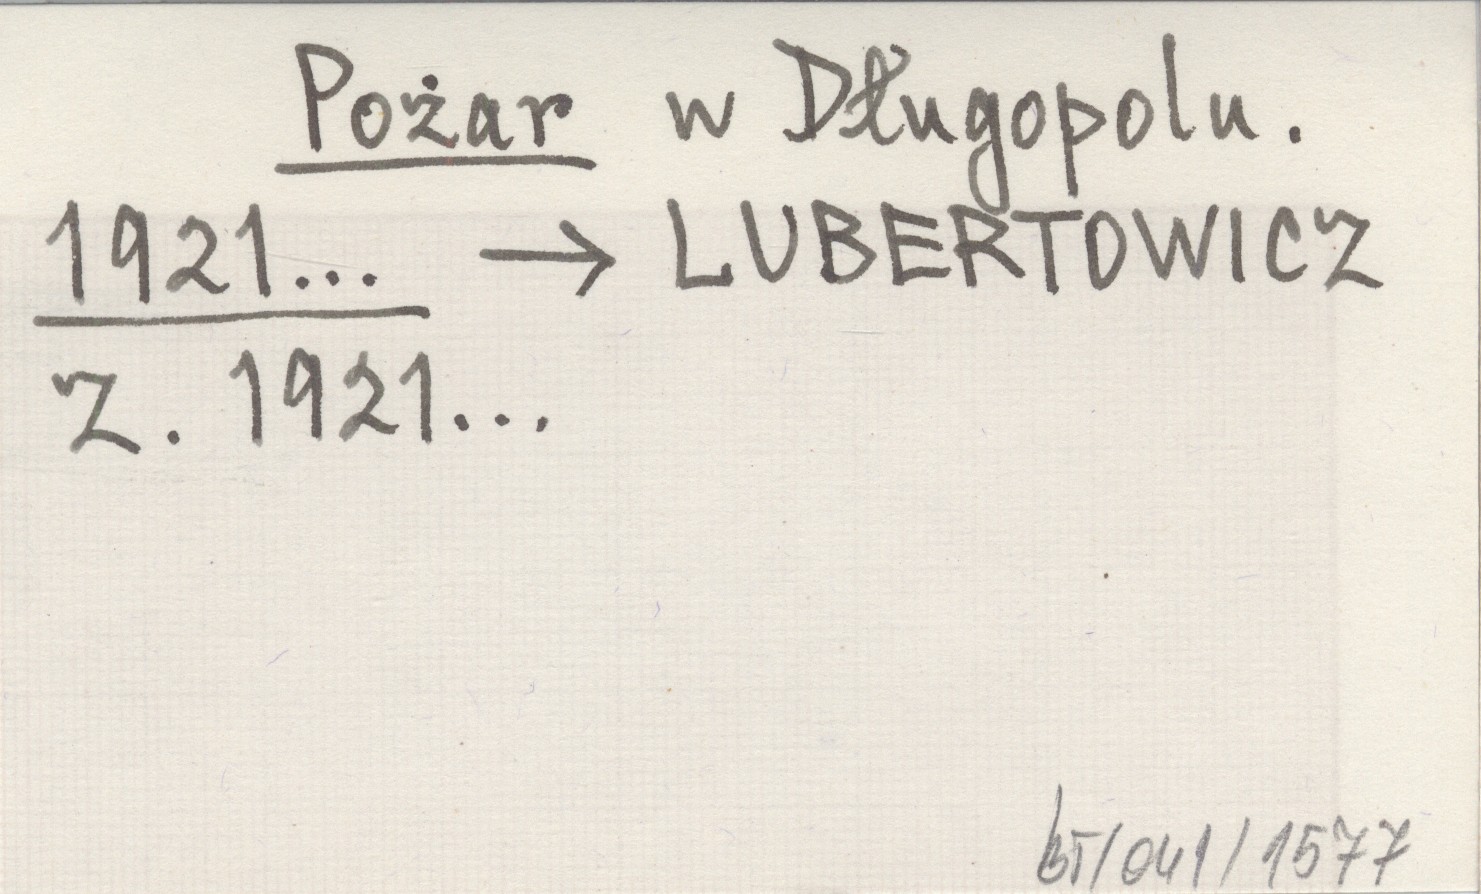 Pożar w Długopolu.
1921... → LUBERTOWICZ
Z. 1921...
/041/1577